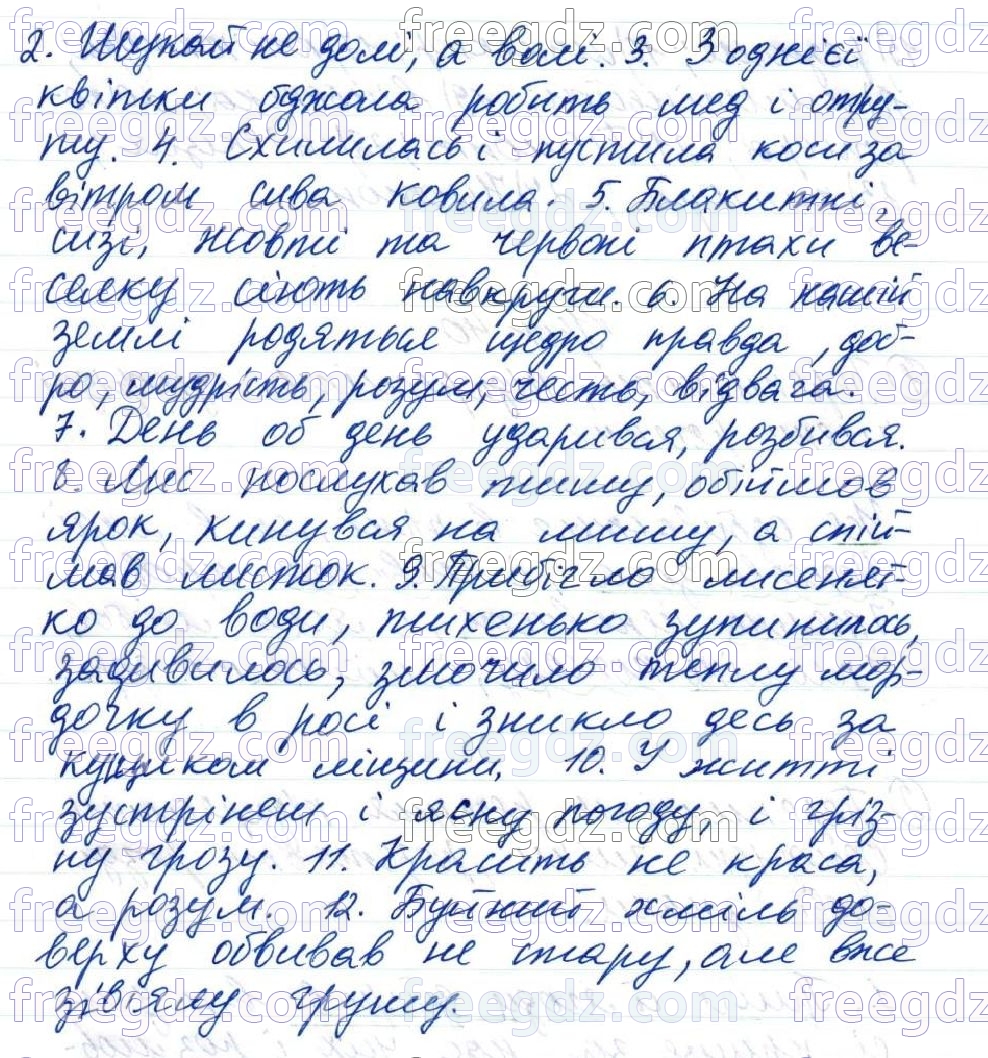 2. Шукай не долі, а волі. 3. З однієї
квітки бджола робить мед і отру-
ту. 4. Схилилась і пустила коси за
вітром сива ковила. 5. Блакитні,
сизі, жовті та червоні птахи ве-
селку сіють навкруги. 6. На нашій
землі родяться щедро правда, доб-
ро, мудрість, розум, честь, відвага.
7. День об день ударився, розбився.
8. Лис послухав тишу, обіймов
ярок, кинувся на мишу, а спій-
мав листок. 9. Прибігло лисенят-
ко до води, тихенько зупинилось,
задивилось, змочило теплу мор-
дочку в росі і зникло десь за
кущиком ліщини. 10. У житті
зустрінеш і ясну погоду, і гріз-
ну грозу. 11. Красить не краса,
а розум. 12. Буйний хміль до-
верху обвивав не стару, але вже
зів'ялу грушу.
freegdz.com